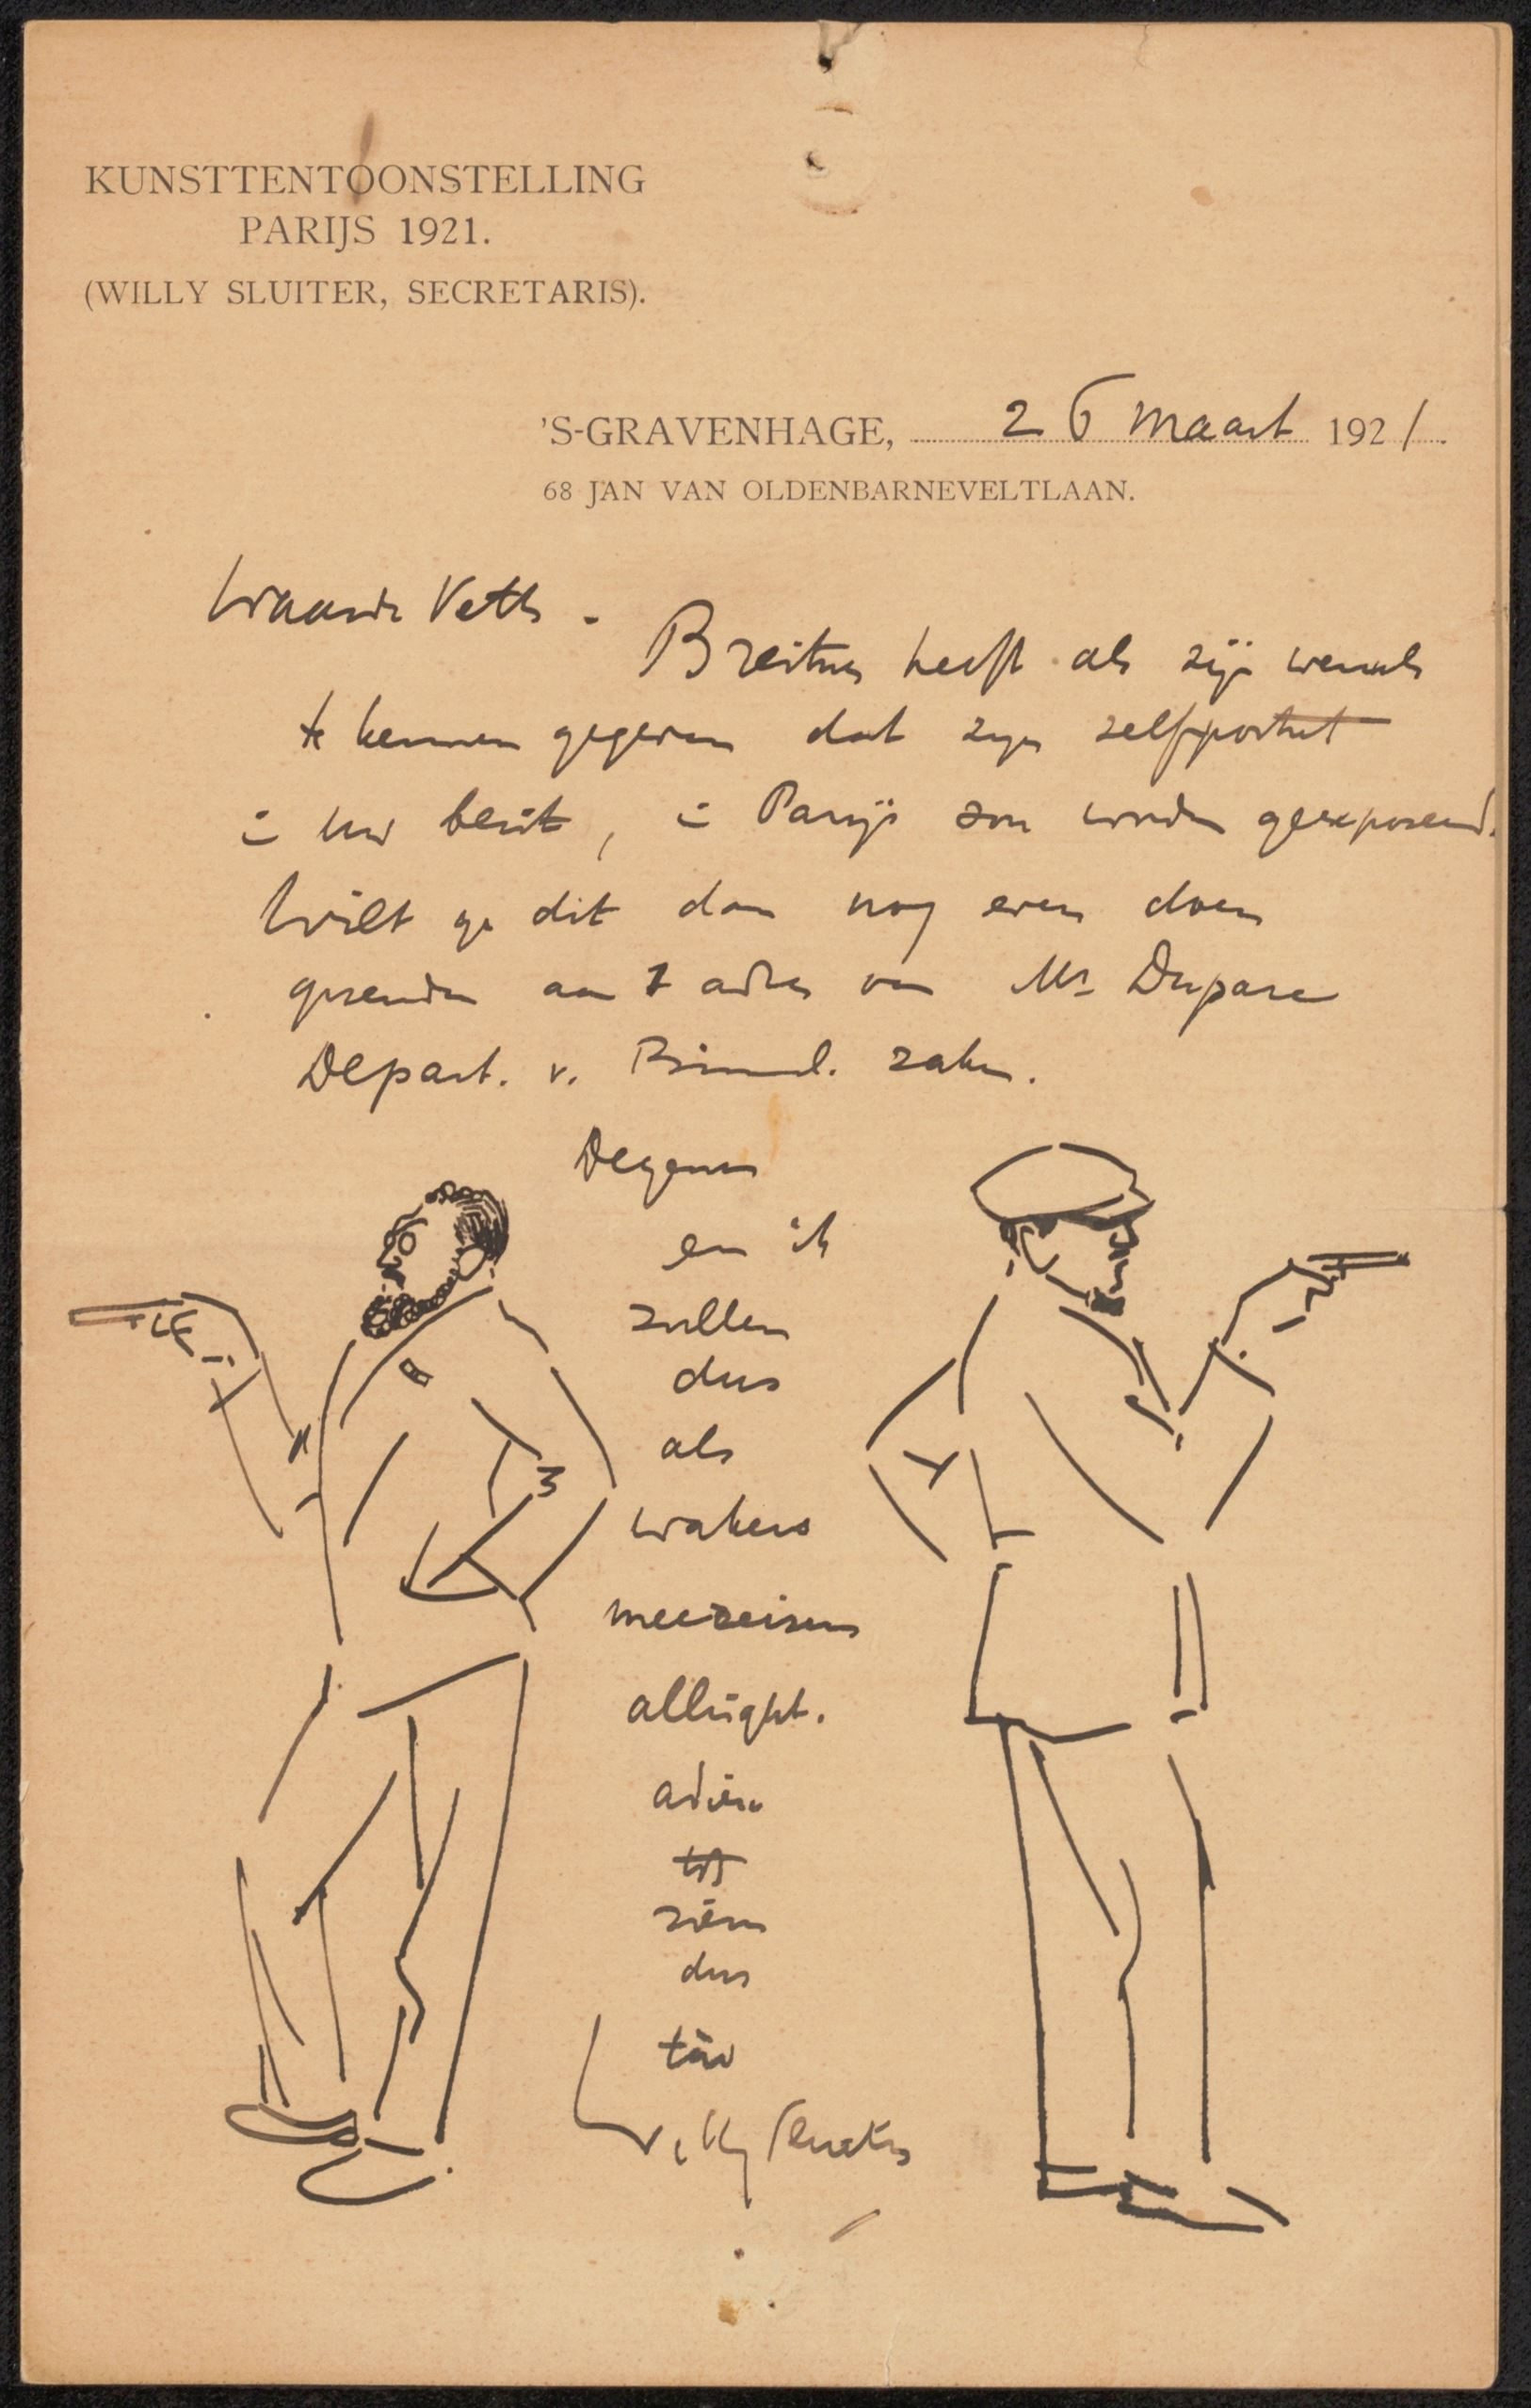 KUNSTTENTOONSTELLING
PARIJS 1921.
(WILLY SLUITER, SECRETARIS).
'S-GRAVENHAGE, 26 Maart 1921.
68 JAN VAN OLDENBARNEVELTLAAN.
Waarde Veth -
Breitner heeft als zijn wensch
te kennen gegeven dat zijn zelfportret
in uw bezit, in Parijs zou worden geexposeerd.
Wilt ge dit dan nog even doen
gezenden aan 't adres van Mr Duparc
Depart. v. Binnenl. zaken.
Degenen
en ik
zullen
dus
als
wakers
meereizen
allright.
adieu
zien
dus
Willy Sluiter